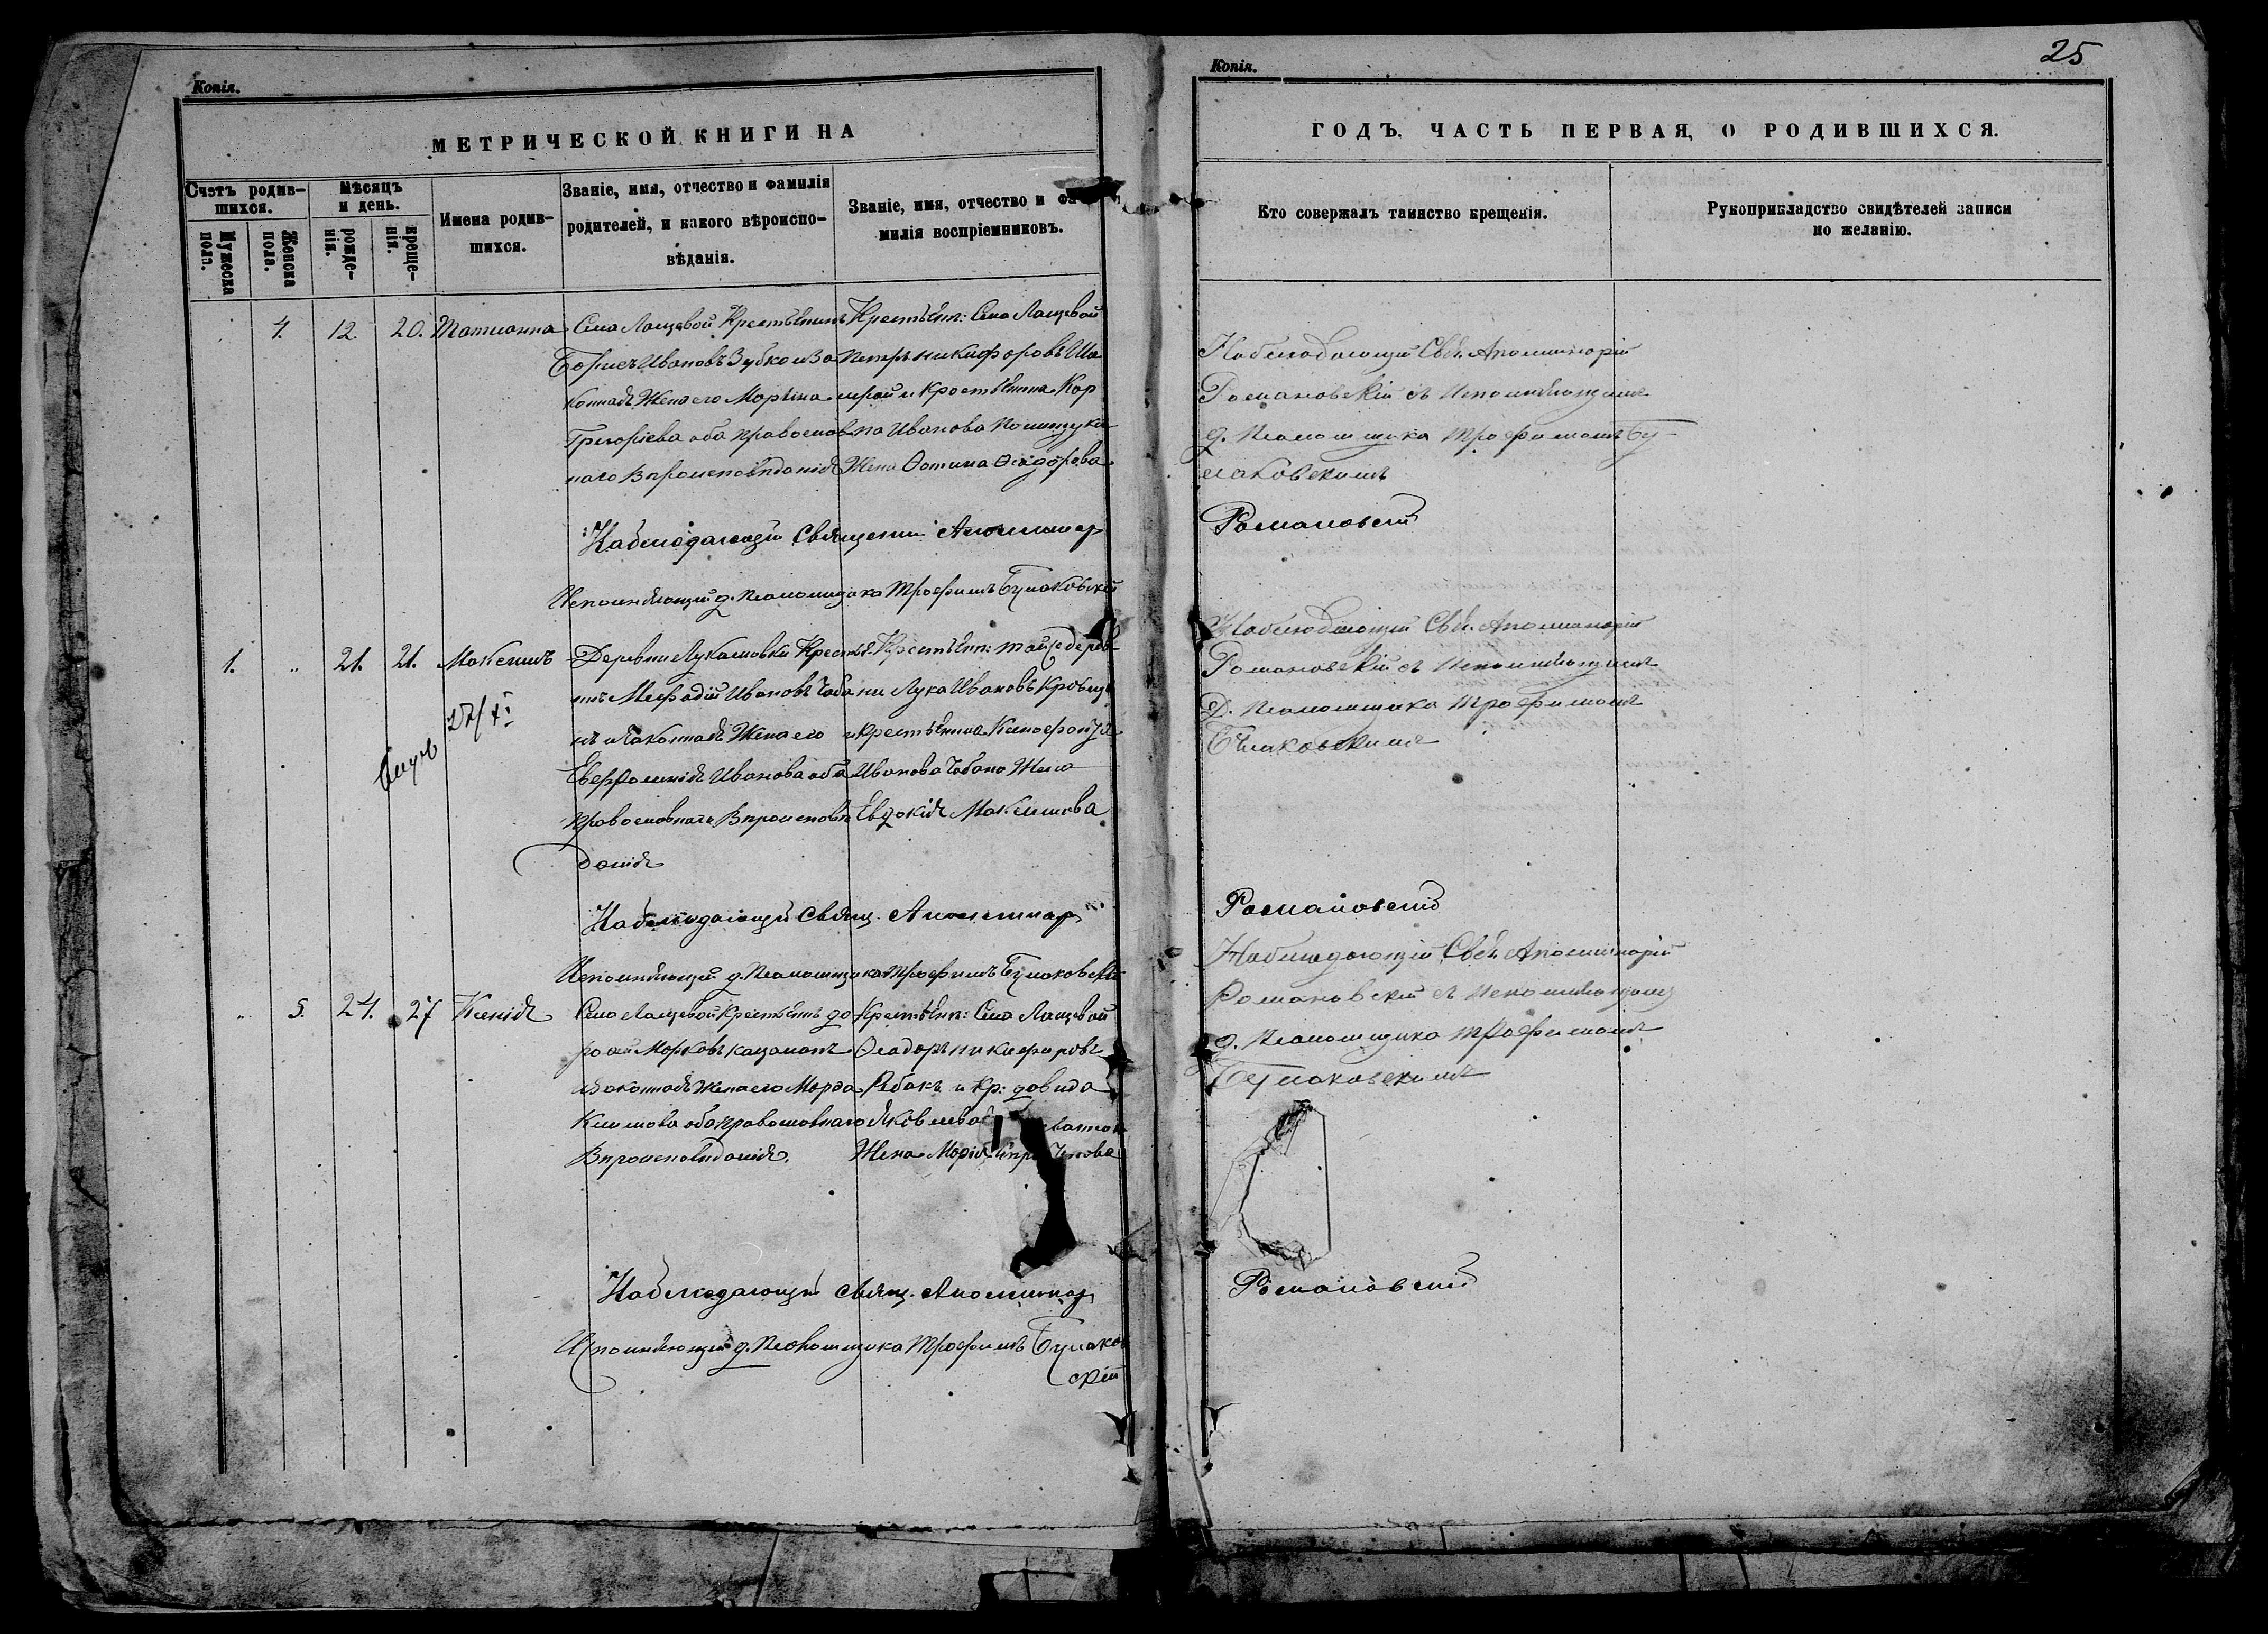 Копія.
МЕТРИЧЕСКОЙ КНИГИ НА
Счетъ родив-
шихся.
Мужеска
пола.
Женска
пола.
Мѣсяцъ
и день.
рожде-
нія.
креще-
нія.
Имена родив-
шихся.
Званіе, имя, отчество и фамилія
родителей, и какого вѣроиспо-
вѣданія.
Званіе, имя, отчество и фа-
милія воспріемниковъ.
4. 12. 20. Татианна
Села Лащевой Крестьянинъ
Борисъ Ивановъ Зубко и За
конная Жена его Маріна
Григоріева оба православ
наго Вѣроисповѣданія
Крестьян: Села Лащевой
Петръ Никифоровъ
и Крестьянина Кар
па Иванова Полищука
Жена Фотина Ѳеодорова
Наблюдающій Священн Аполлинар
Исполняющій д. Псаломщика Трофимъ Булаковскій
1. " 21. 21. Максимъ
Деревни Лукашовки Кресть
нъ Мефодій Ивановъ Чаба
нъ и Законная Жена его
Евфросинія Иванова оба
Православнаго Вѣроисповѣ
данія
Крестьян: той же дерев
ни Лука Ивановъ
и Крестьянина Ксенофонта
Иванова Чабана Жена
Евдокія Максимова
Наблюдающій Свящ. Аполлинар
Исполняющій д. Псаломщика Трофимъ Булаковскій
" 5. 24. 27 Ксенія
Села Лащевой Крестьянъ До
рофей Марковъ Кацаманъ
и Законная Жена его Марѳа
Климова оба православнаго
Вѣроисповѣданія.
Крестьян: Села Лащевой
Ѳеодоръ Никифоровъ
Рыбакъ и Кр: Давида
Яковлева
Жена Марія
Наблюдающій Свящ. Аполлинар
Исполняющій д. Псаломщика Трофимъ Булаков
скій
Копія.
25
ГОДЪ, ЧАСТЬ ПЕРВАЯ, О РОДИВШИХСЯ.
Кто совержалъ таинство крещенія.
Рукоприкладство свидѣтелей записи
по желанію.
Наблюдающій Свя. Аполлинарій
Романовскій съ Исполняющимъ
д. Псаломщика Трофимомъ Бу-
лаковскимъ
Романовскій
Наблюдающій Свя. Аполлинарій
Романовскій съ Исполняющимъ
Д. Псаломщика Трофимомъ
Булаковскимъ
Романовскій
Наблюдающій Свя. Аполлинарій
Романовскій съ Исполняющимъ
д. Псаломщика Трофимомъ
Булаковскимъ
Романовскій